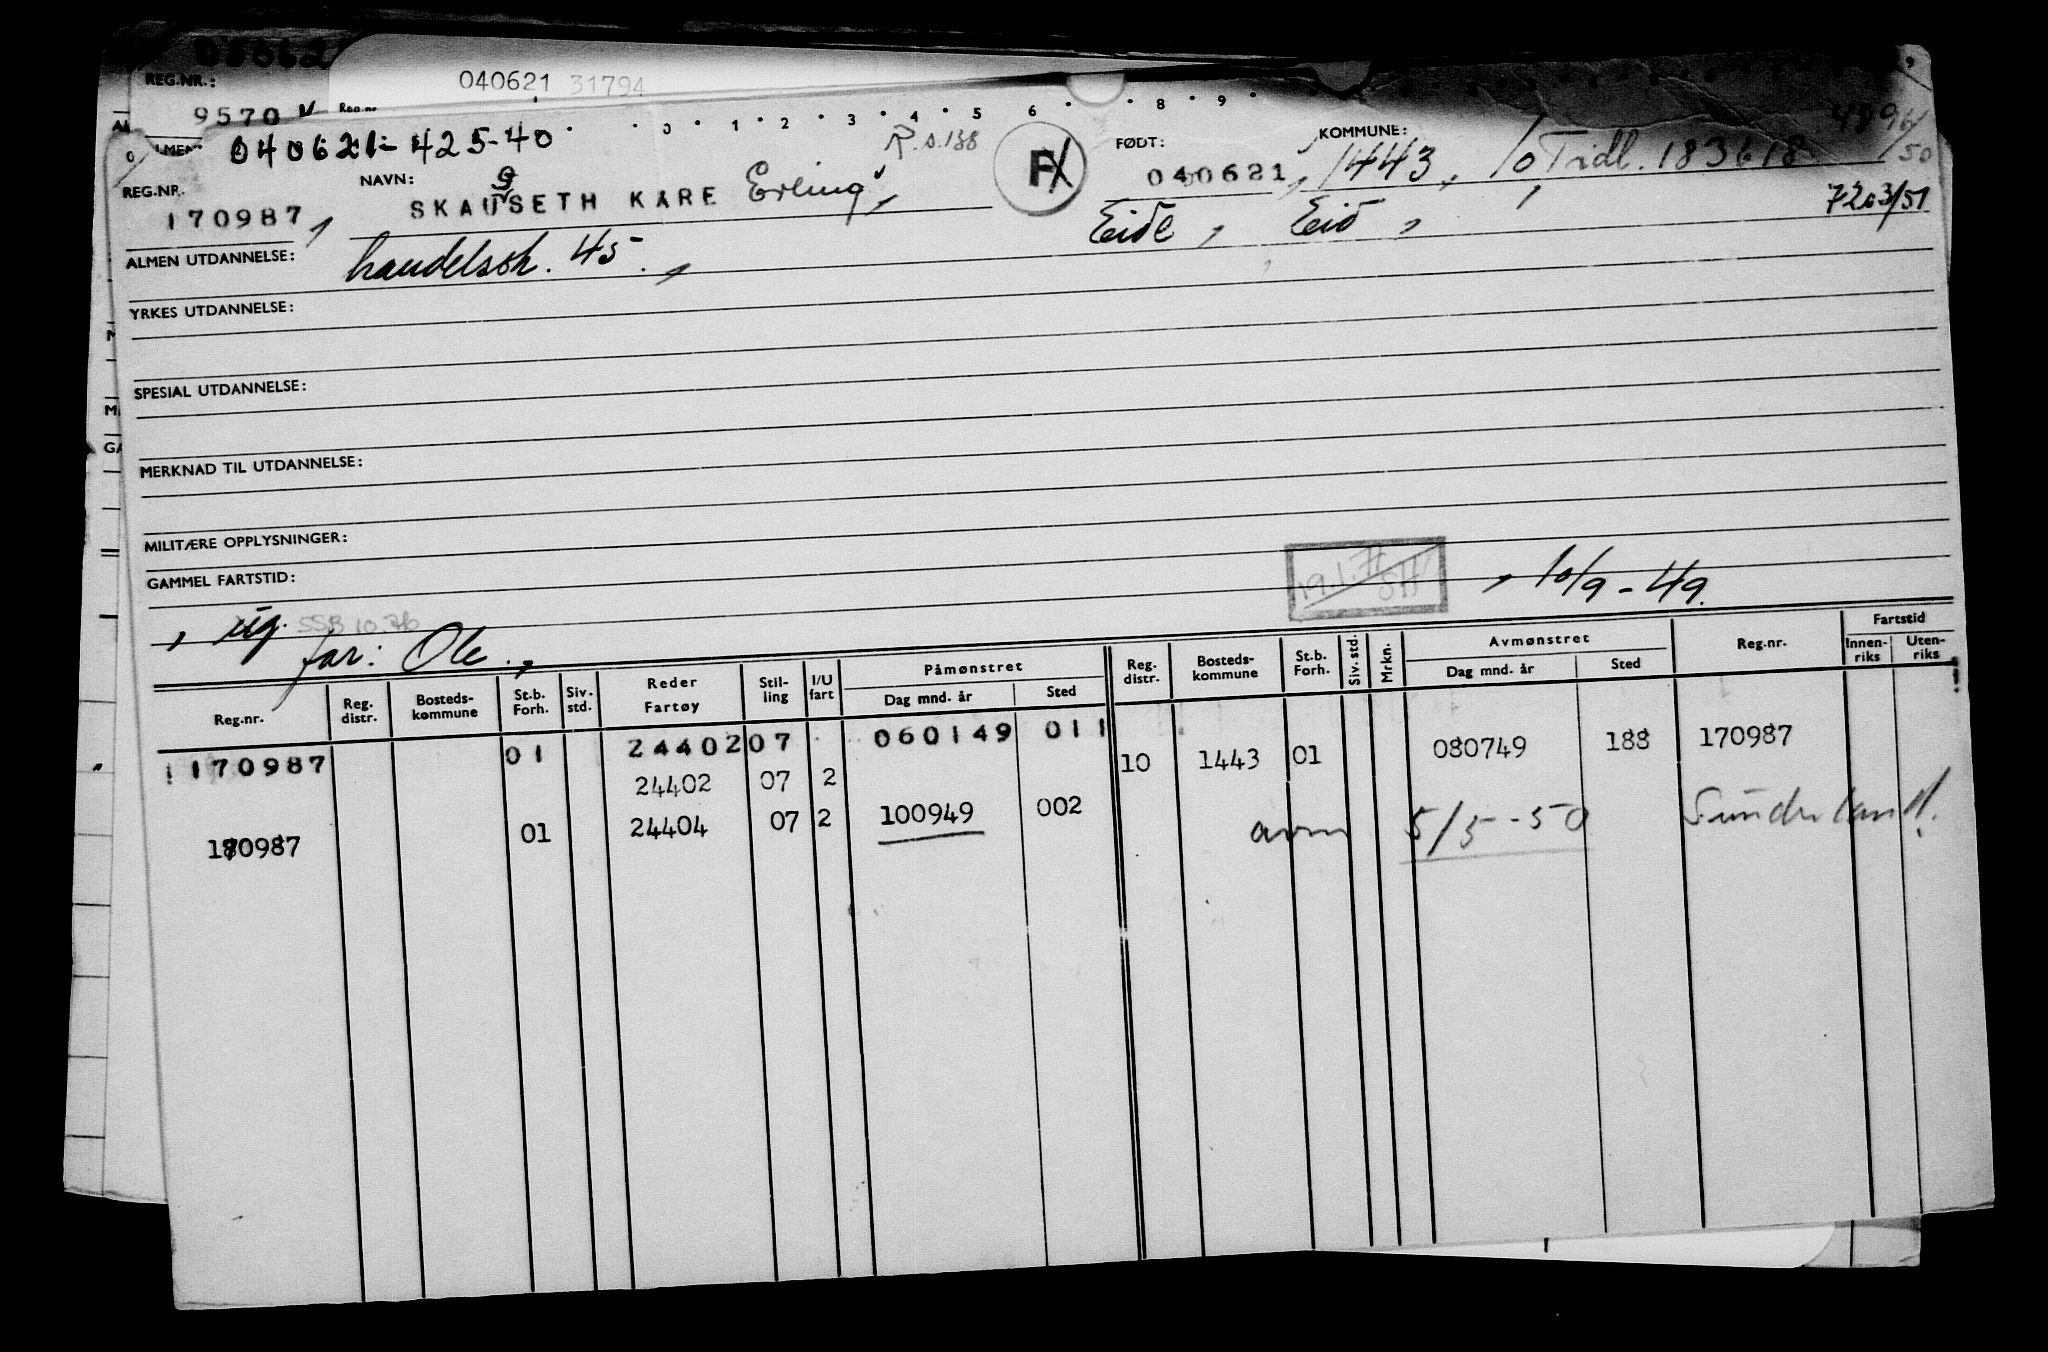 REG.NR.:
9570
040621 31794
Reg.nr.
040621-425-40
0 1 2 3 4 5 6 8 9
R.s.188
F
FØDT:
040621
KOMMUNE:
1443, 10 Tidl. 183618
50
7203/51
REG.NR.
170987,
NAVN:
SKAUSETH KARE Erling,
g
Eide, Eid,
ALMEN UTDANNELSE:
handelssk. 45.,
YRKES UTDANNELSE:
SPESIAL UTDANNELSE:
MERKNAD TIL UTDANNELSE:
MILITÆRE OPPLYSNINGER:
GAMMEL FARTSTID:
, 10/9-49.
, ug. SSB 10.76
far: Ole.,
Reg.nr. Reg. distr. Bosteds-kommune St.b. Forh. Siv. std. Reder Fartøy Stil-ling I/U fart Påmønstret Dag mnd. år Sted Reg. distr. Bosteds-kommune St.b. Forh. Siv. std. Mrkn. Avmønstret Dag mnd. år Sted Reg.nr. Fartstid Innen-riks Uten-riks
170987 01 24402 07 060149 011 10 1443 01 080749 188 170987
24402 07 2
170987 01 24404 07 2 100949 002 avm 5/5-50 Sunderland!